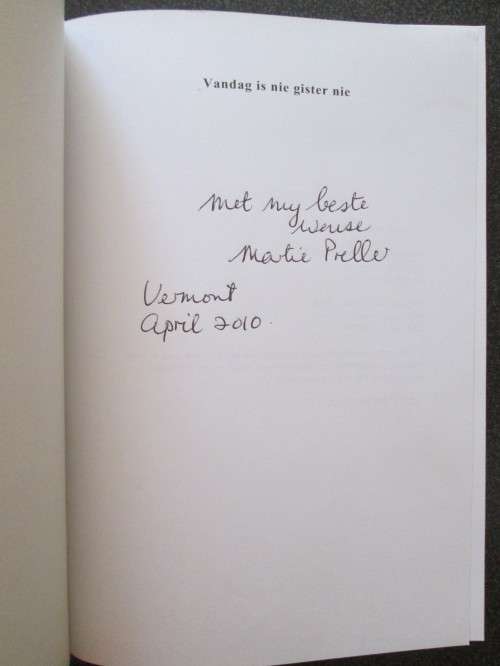 Vandag is nie gister nie
Met my beste
wense
Martie Preller
Vermont
April 2010.